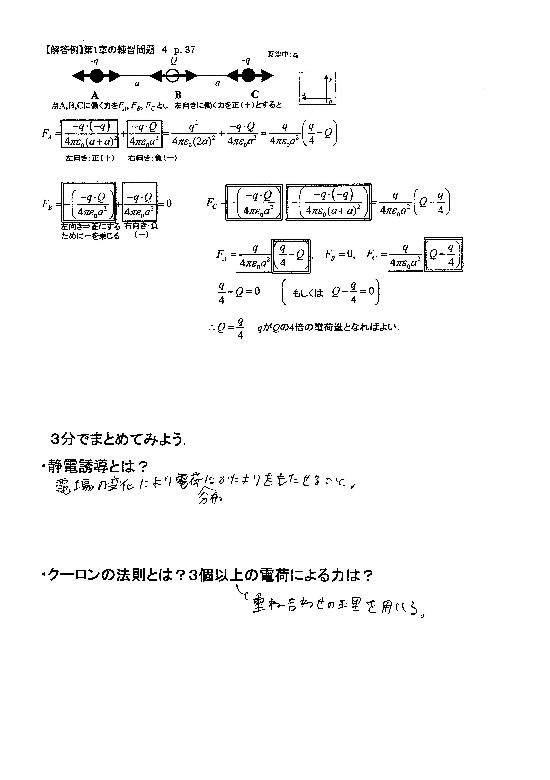 【解答例】第1章の練習問題 4 p.37
真空中:ε₀
-q Q -q
a a
A B C
点A,B,Cに働く力をF_A, F_B, F_Cとし 左向きに働く力を正(+)とすると
F_A = \frac{-q・(-q)}{4πε₀(a+a)²} + \frac{-q・Q}{4πε₀a²} = \frac{q²}{4πε₀(2a)²} + \frac{-q・Q}{4πε₀a²} = \frac{q}{4πε₀a²}(\frac{q}{4} - Q)
左向き:正(+) 右向き:負(-)
F_B = -(\frac{-q・Q}{4πε₀a²}) + \frac{-q・Q}{4πε₀a²} = 0
左向き=正にする 右向き:負
ために-を乗じる (-)
F_C = -(\frac{-q・Q}{4πε₀a²}) -(\frac{-q・(-q)}{4πε₀(a+a)²}) = \frac{q}{4πε₀a²}(Q - \frac{q}{4})
F_A = \frac{q}{4πε₀a²}(\frac{q}{4} - Q), F_B = 0, F_C = \frac{q}{4πε₀a²}(Q - \frac{q}{4})
\frac{q}{4} - Q = 0 (もしくは Q - \frac{q}{4} = 0)
∴Q = \frac{q}{4} qがQの4倍の電荷量となればよい.
3分でまとめてみよう.
・静電誘導とは?
電場の変化により電荷にかたよりをもたせること。
分布
・クーロンの法則とは?3個以上の電荷による力は?
重ね合わせの原理を用いる。